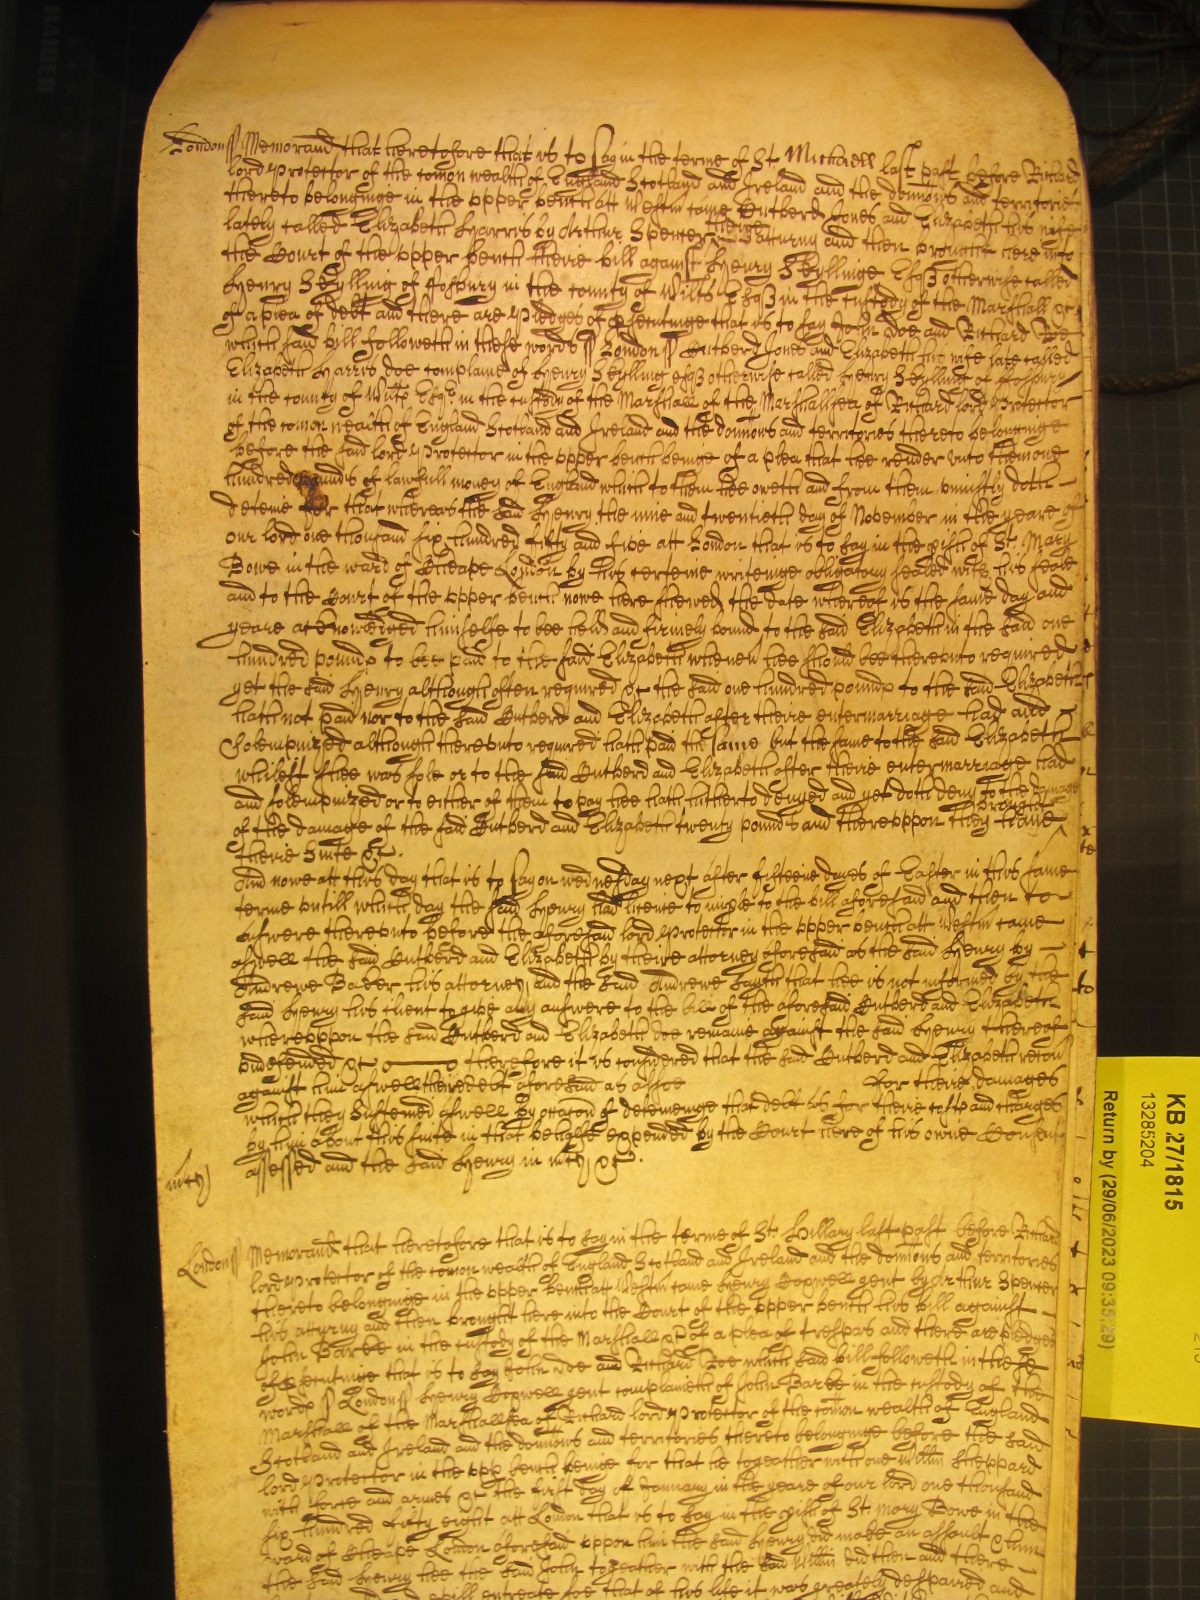 London ss Memorand that heretofore that is to say in the terme of St Michaell last past before Richard
lord Protector of the comon wealth of England Scotland and Ireland and the domions and territories
thereto belonginge in the upper bench att Westm came Cutberd Jones and Elizabeth his wife
lately called Elizabeth Harris by Arthur Spencer theire atturny and then brought here into
the Court of the upper bench theire bill against Henry Skyllinge Esqr otherwise called
Henry Skylling of in the county of Wilts Esqr in the custody of the Marshall &c
of a plea of debt and there are Pledges of psecutinge that is to say John Doe and Richard Roe
which said bill followeth in these words ss London ss Cutberd Jones and Elizabeth his wife late called
Elizabeth Harris doe complaine of Henry Skylling esqr otherwise called Henry Skylling of
in the county of Wilts Esqr in the custody of the Marshall of the Marshallsea of Richard lord Protector
of the comon wealth of England Scotland and Ireland and the domions and territories thereto belonginge
before the said lord Protector in the upper bench beinge of a plea that hee render unto them one
hundred pounds of lawfull money of England which to them hee oweth and from them uniustly doth
deteine For that whereas the said Henry the nine and twentieth day of November in the yeare of
our lord one thousand six hundred fifty and five att London that is to say in the pish of St Mary
Bowe in the ward of Cheape London by his certeine writeinge obligatory sealed with his seale
and to the Court of the upper bench nowe here shewed the date whereof is the same day and
yeare acknowledged himselfe to bee held and firmely bound to the said Elizabeth in the said one
hundred pounds to bee paid to the said Elizabeth when hee should bee thereunto required
yet the said Henry although often required &c the said one hundred pounds to the said Elizabeth
hath not paid nor to the said Cutberd and Elizabeth after theire entermarriage had and
Solempnized although thereunto required hath paid the same but the same to the said Elizabeth
whilest shee was sole or to the said Cutberd and Elizabeth after theire entermarriage had
and solempnized or to either of them to pay hee hath hitherto denyed and yet doth deny to the damage
of the damage of the said Cutberd and Elizabeth twenty pounds and thereuppon they brought
theire Suite &c.
And nowe att this day that is to say on wednesday next after fifteene dayes of Easter in this same
terme untill which day the said Henry had licence to imple to the bill aforesaid and then to
answere thereunto before the aforesaid lord Protector in the upper bench att Westm came
aswell the said Cutberd and Elizabeth by theire attorney aforesaid as the said Henry by
Andrewe Baker his attorney and the said Andrewe sayth that hee is not informed by the
said Henry his client to give any answere to the bill of the aforesaid Cutberd and Elizabeth
whereuppon the said Cutberd and Elizabeth doe remaine against the said Henry thereof
undefended &c therefore it is considered that the said Cutberd and Elizabeth recou
against him aswell theire debt aforesaid as alsoe for theire damages
which they susteined aswell by occacon of deteineinge that debt as for theire costs and charges
by him about this suite in that behalfe expended by the Court here of his owne Consent
assessed and the said Henry in mcy &c.
mcy
London ss Memorand that heretofore that is to say in the terme of St Hillary last past before Richard
lord Protector of the comon wealth of England Scotland and Ireland and the domions and territories
thereto belonginge in the upper bench att Westm came Henry Copwell gent by Arthur Spencer
his atturny and then brought here into the Court of the upper bench his bill against
John Barke in the custody of the Marshall &c of a plea of trespas and there are pledges
of psecutinge that is to say John Doe and Richard Roe which said bill followeth in these
words ss London ss Henry Copwell gent complaineth of John Barke in the custody of the
Marshall of the Marshallsea of Richard lord Protector of the comon wealth of England
Scotland and Ireland and the domions and territories thereto belonginge before the said
lord Protector in the upp bench beinge for that he togeather with one Willm Sheppard
with force and armes &c the first day of January in the yeare of our lord one thousand
six hundred fifty eight att London that is to say in the pish of St Mary Bowe in the
ward of Cheape London aforesaid uppon him the said Henry did make an assault & him
the said Henry hee the said John togeather with the said Willm did then and there
evill entreate soe that of his life it was greately despaired and
KB 27/1815
13285204
Return by (29/06/2023 09:35:29)